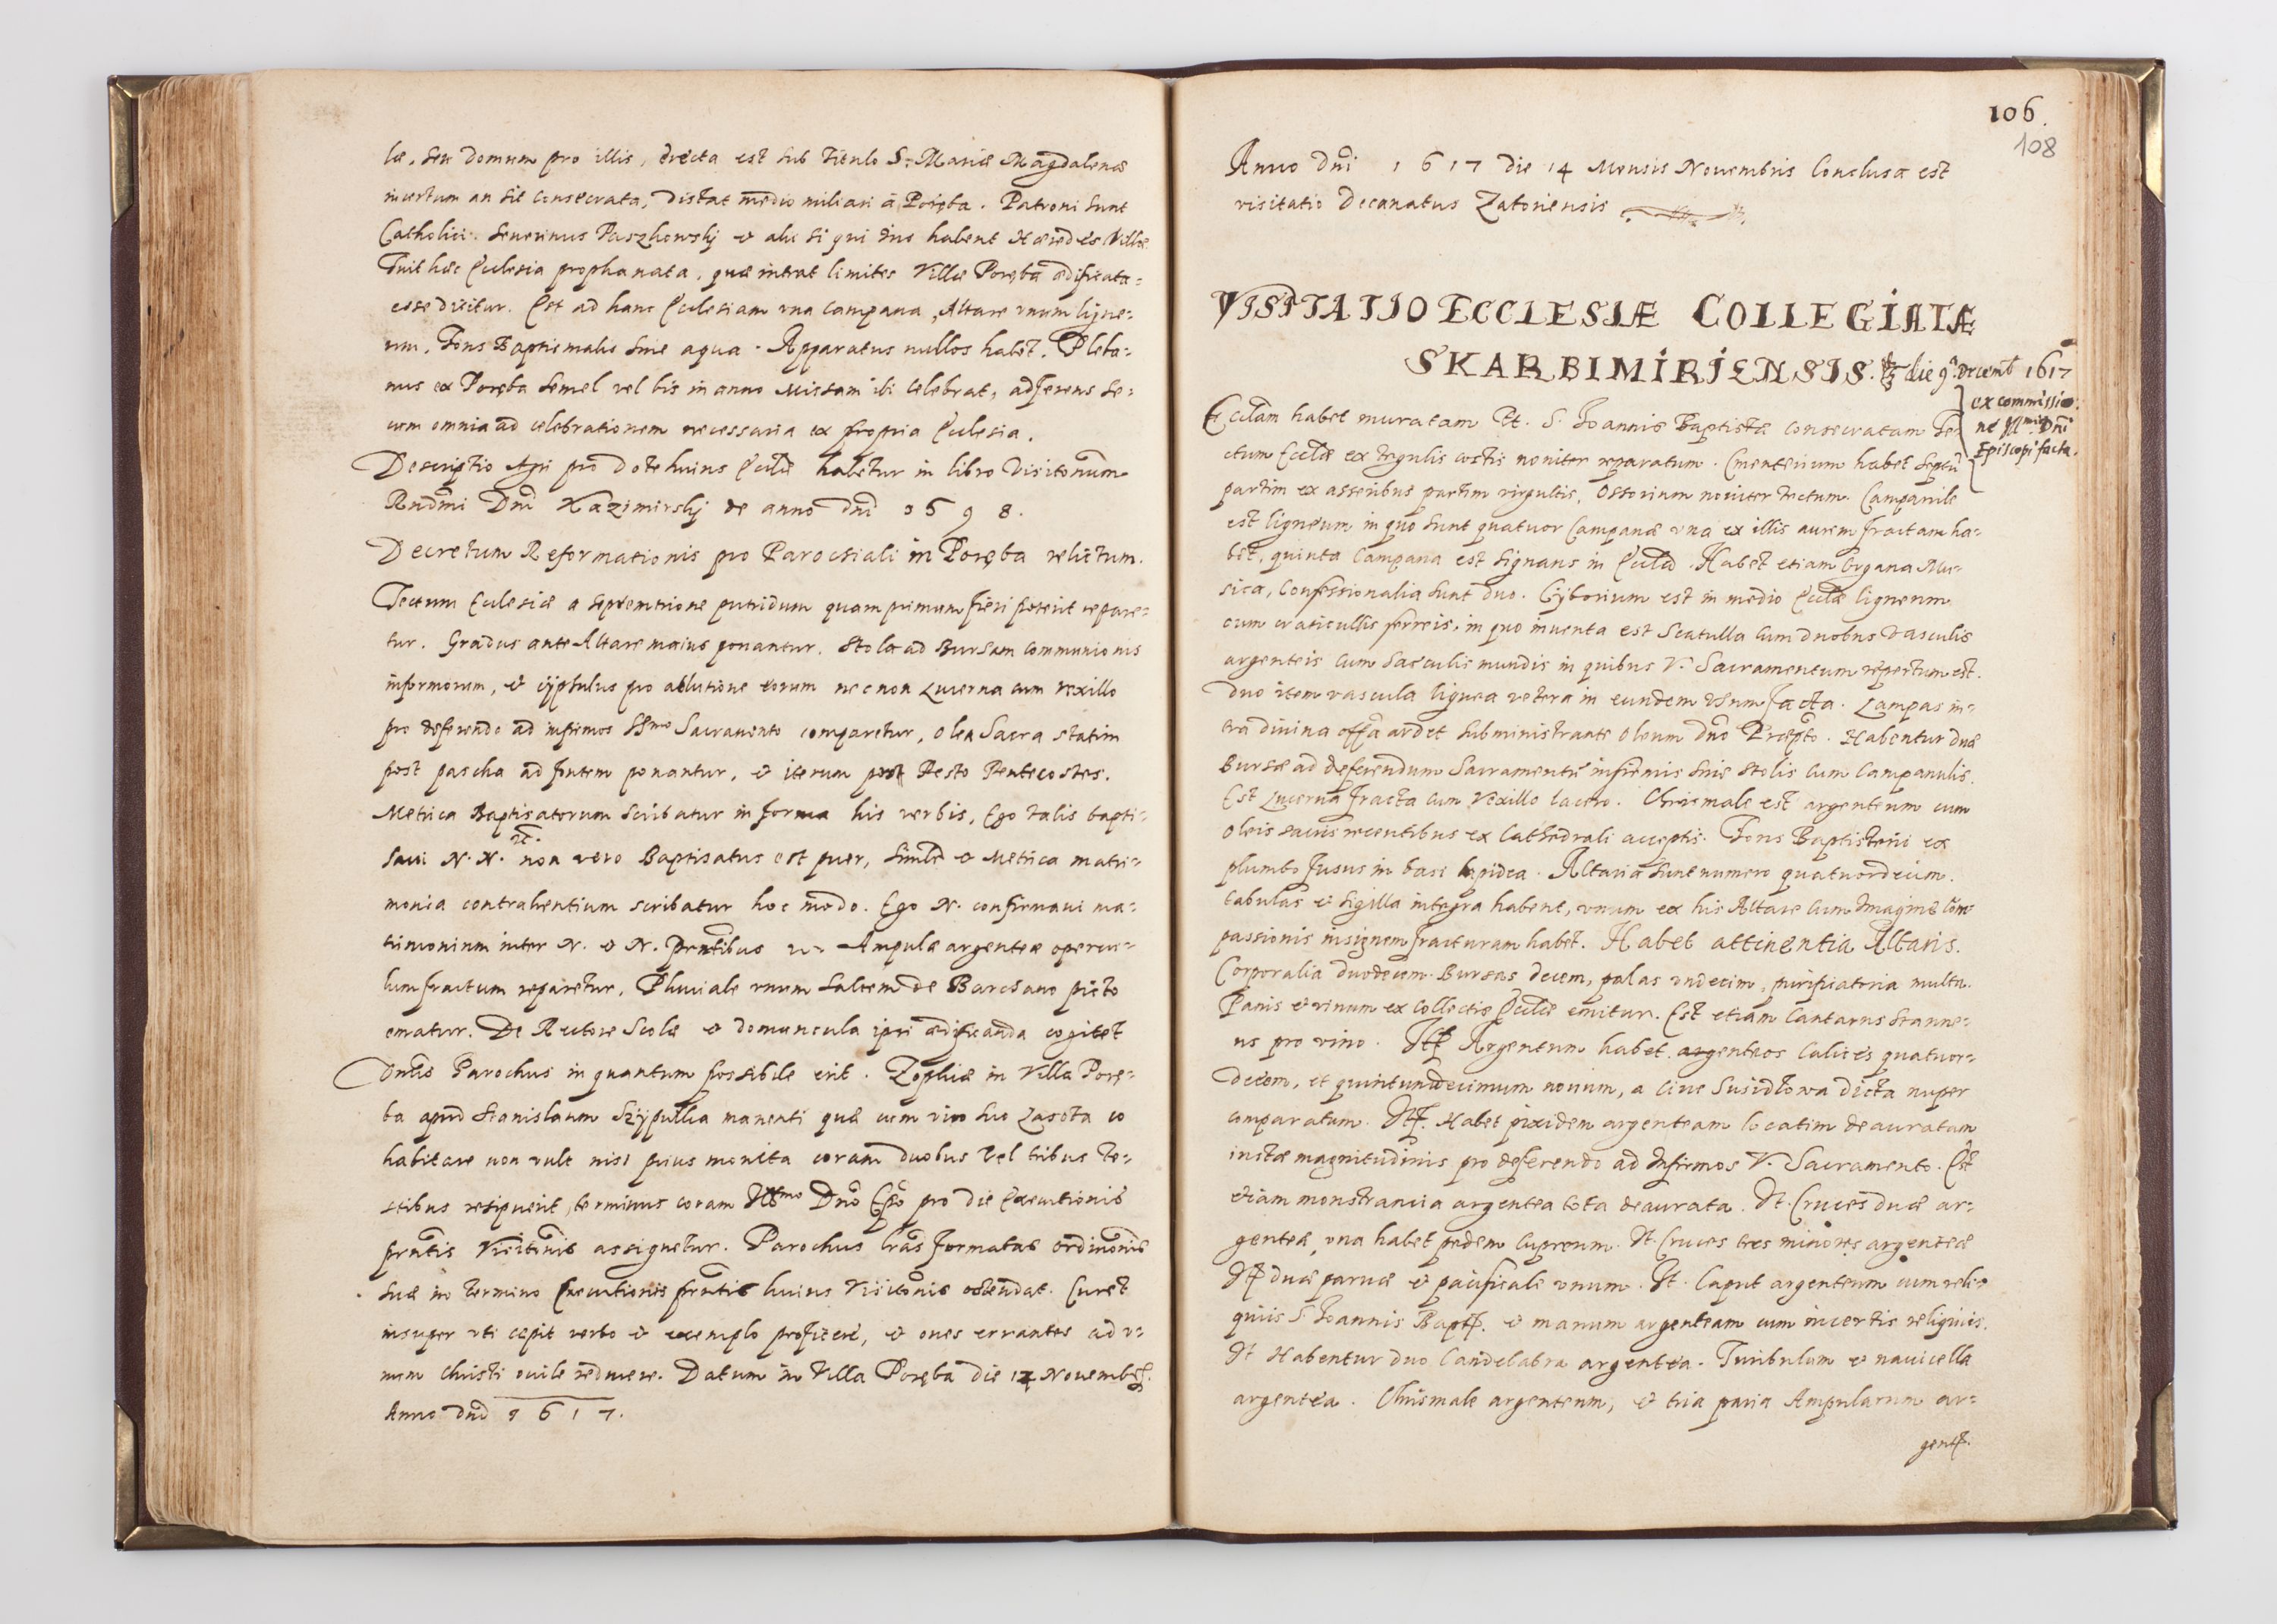 læ, seu domum pro illis, erecta est sub titulo S. Mariæ Magdalenæ
incertum an sit consecrata, distat medio miliari à Poręba. Patroni sunt
Catholici. Seuerinus Paszkowskj et alii si qui ius habent Hæredes Villæ
Fuit hæc Ecclesia prophanata, quæ intrat limites Villæ Poręba ædificata
esse dicitur. Est ad hanc Ecclesiam vna campana, Altare vnum ligne-
um, Fons Baptismalis sine aqua. Apparatus nullos habet. Pleba-
nus ex Poręba semel vel bis in anno Missam ibi celebrat, adferens se-
cum omnia ad celebrationem necessaria ex propria Ecclesia.
Descriptio Agri pro dote huius Eccliæ habetur in libro Visitonum
Rndmi Dni Kazimirskj de anno dni 1598.
Decretum Reformationis pro Parochiali in Poręba relictum.
Tectum Eclesiæ a septemtrione putridum quam primum fieri poterit repare-
tur. Gradus ante Altare maius ponantur. Stola ad Bursam communionis
infirmorum, et cyphulus pro ablutione eorum nec non Lucerna cum vexillo
pro deferendo ad infirmos SSmo Sacramento comparetur, Olea Sacra statim
post pascha ad fontem ponantur, et iterum post Festo Pentecostes.
Metrica Baptisatorum scribatur in forma his verbis, Ego talis bapti-
saui N. N. etc. non vero Baptisatus est puer, simile et Metrica matri-
monia contrahentium scribatur hoc modo. Ego N. confirmaui ma-
trimonium inter N. et N. pntibus etc. Ampulæ argenteæ opercu-
lum fractum reparetur, Pluuiale vnum saltem de Barchano picto
ematur. De Rectore Scolæ et domuncula ipsi ædificanda cogitet
Dnus Parochus in quantum possibile erit. Zophiæ in Villa Porę-
ba apud Stanislaum Szypulka manenti quæ cum viro suo Lasota co
habitare non vult nisi prius monita coram duobus vel tribus te-
stibus resipuerit, terminus coram Illmo Dno Epo pro die Executionis
pntis Visitonis assignetur. Parochus lras formatas ordinonis
suæ in termino Executionis pntis huius Visitonis ostendat. Curet
insuper vti cæpit verbo et exemplo proficere, et oues errantes ad v-
num Christi ouile reducere. Datum in Villa Poręba die 14 Nouembris.
Anno dni 1617.
106.
108
Anno dni 1617 die 14 Mensis Nouembris Conclusa est
visitatio Decanatus Zatoriensis
VISITATIO ECCLESIÆ COLLEGIATÆ
SKARBIMIRIENSIS. die 9 Decemb 1617
ex commissio-
ne Illmi Dni
Episcopi facta.
Ecclam habet muratam tit. S. Joannis Baptistæ consecratam Te-
ctum Eccliæ ex tegulis coctis nouiter reparatum. Cmenterium habet septũ
partim ex asseribus partim virgultis, Ossorium nouiter tectum. Campanile
est ligneum in quo sunt quatuor Campanæ vna ex illis aurem fractam ha-
bet, quinta Campana est signans in Eccliã. Habet etiam Organa Mu-
sica, Confessionalia sunt duo. Cyborium est in medio Eccliæ ligneum
cum craticullis ferreis, in quo inuenta est Scatulla cum duobus vasculis
argenteis cum sacculis mundis in quibus V. Sacramentum repertum est.
Duo item vascula lignea vetera in eundem vsum facta. Lampas in-
tra diuina offa ardet subministrante oleum dno Præpto. Habentur duæ
Bursæ ad deferendum Sacramentũ infirmis sine stolis cum Campanulis.
Est Lucerna fracta cum vexillo lacero. Chrismale est argenteum cum
Oleis sacris recentibus ex Cathedrali acceptis. Fons Baptisterii ex
plumbo fusus in basi lapidea. Altaria sunt numero quatuordecim.
tabulas et sigilla integra habent, vnum ex his Altare cum Imagine Com-
passionis insignem fracturam habet. Habet attinentia Altaris.
Corporalia duodecim. Bursas decem, palas vndecim, purificatoria multa.
Panis et vinum ex collectis Eccliæ emitur. Est etiam Cantarus stanne-
us pro vino. Itt Argentum habet argenteos Calices quatuor-
decem, et quintumdecimum nouum, a Ciue Susidkowa dicta nuper
comparatum. Itt. Habet pixidem argenteam locatim deauratam
iustæ magnitudinis pro deferendo ad Infirmos V. Sacramento. Est
etiam monstrancia argentea tota deaurata. It. Cruces duæ ar-
genteæ, vna habet pedem cupreum. It. Cruces tres minores argenteæ
Itt duæ paruæ et pacificale vnum. It. Caput argenteum cum reli-
quiis S. Joannis Bapt. et manum argenteam cum incertis reliquiis.
It Habentur duo Candelabra argentea. Turibulum et nauicella
argentea. Chrismale argenteum, et tria paria Ampularum ar-
gent.